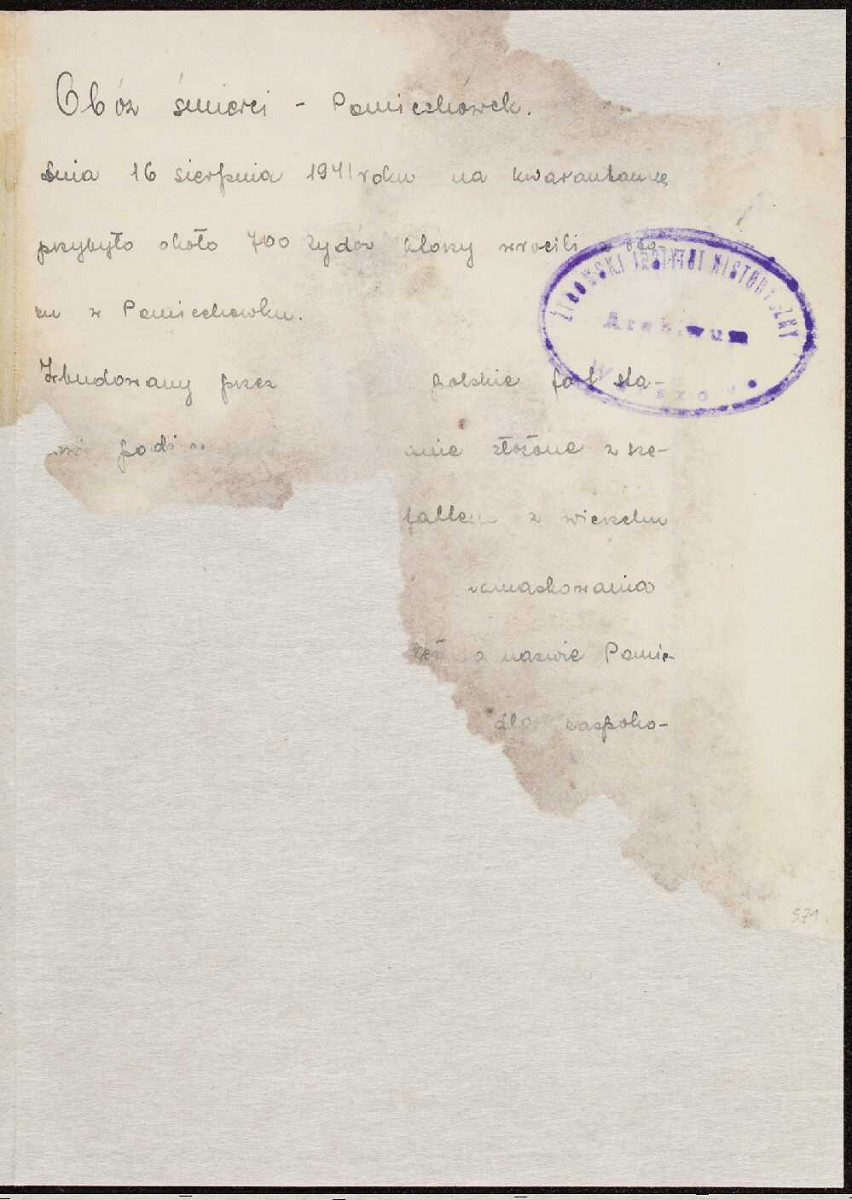 Obóz śmierci - Pomiechówek.
dnia 16 sierpnia 1941 roku na kwarantannę
przybyło około 700 Żydów którzy wrócili z obo-
zu w Pomiechowku.
Zbudowany przez polskie fort sta-
podz anie złożone z sze-
z wierzchu
zamaskowania
o nazwie Pomie-
dla zaspoko-
ŻYDOWSKI INSTYTUT HISTORYCZNY
Archiwum
Warszawa
571